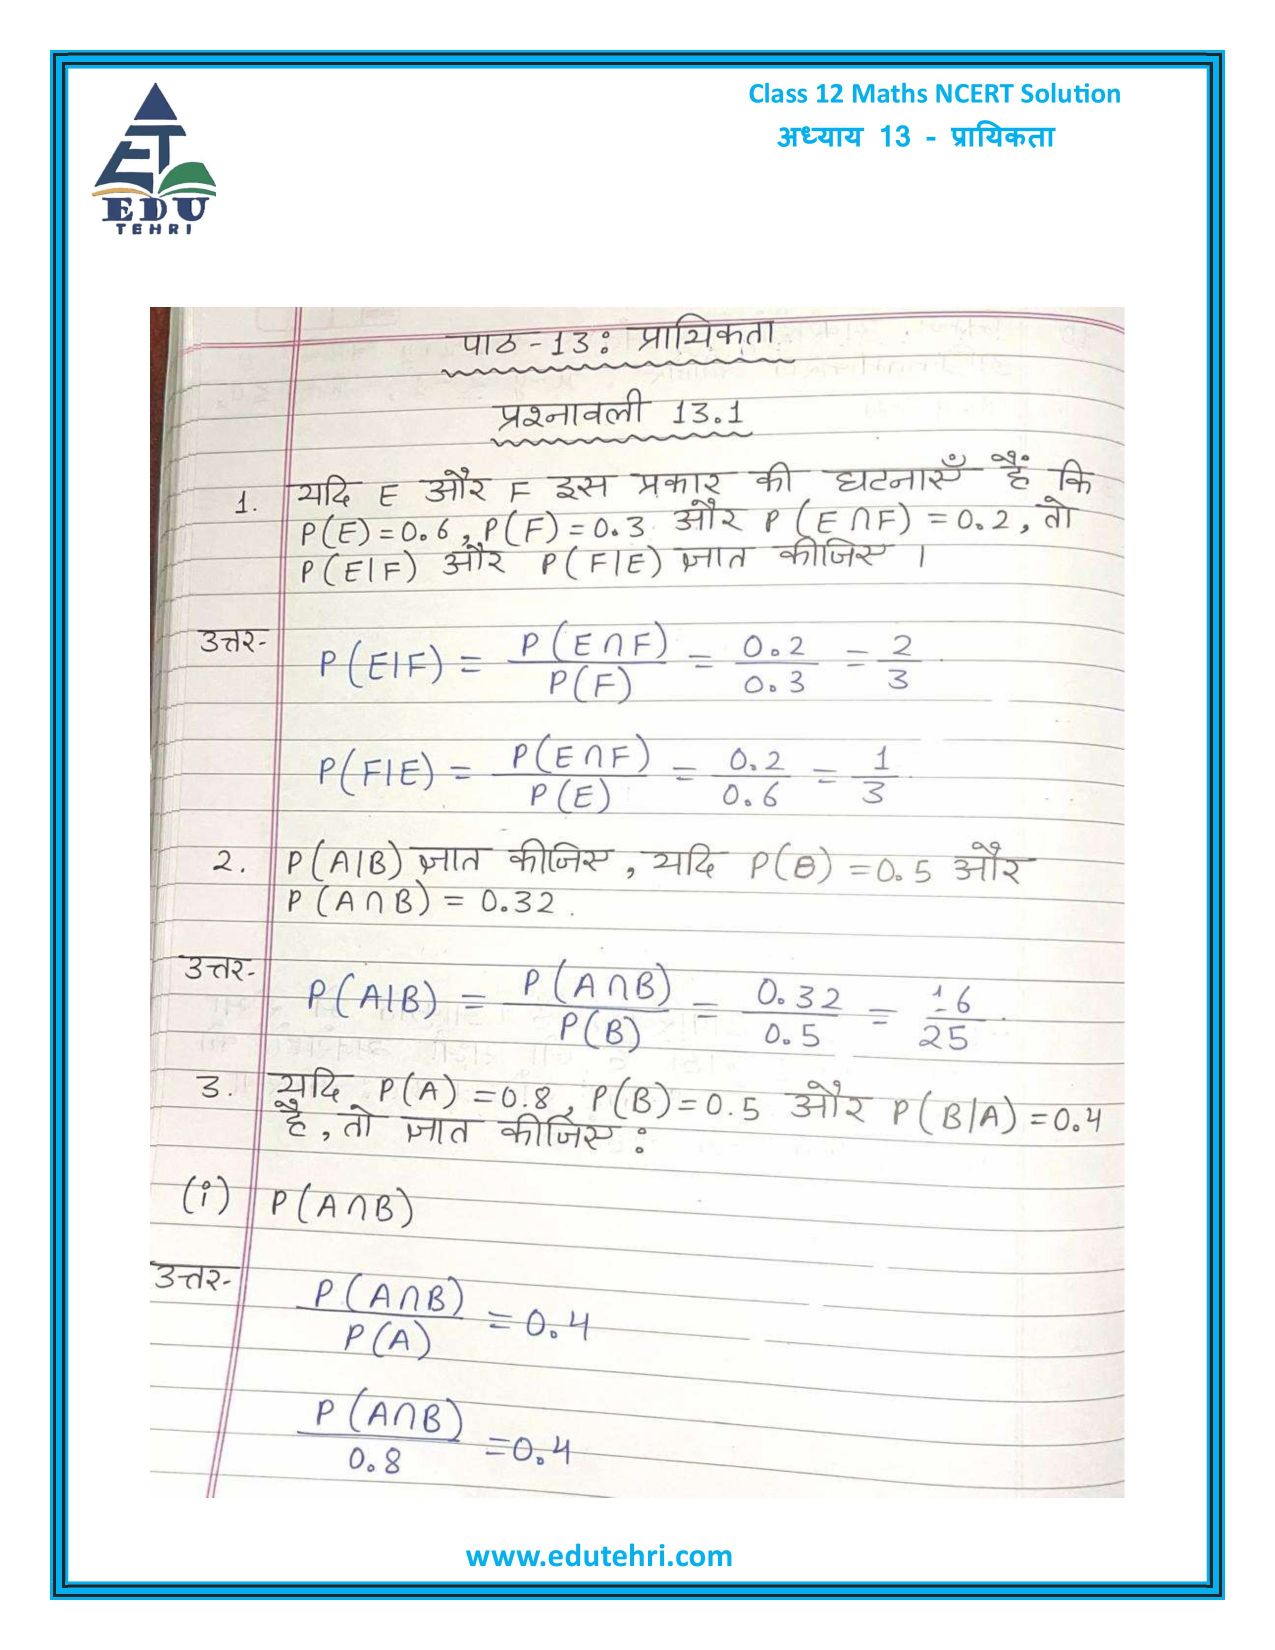 Class 12 Maths NCERT Solution
अध्याय 13 - प्रायिकता
EDU
TEHRI
पाठ - 13: प्रायिकता
प्रश्नावली 13.1
1. यदि E और F इस प्रकार की घटनाएँ हैं कि
P(E) = 0.6, P(F) = 0.3 और P(E∩F) = 0.2, तो
P(E|F) और P(F|E) ज्ञात कीजिए ।
उत्तर- P(E|F) = P(E∩F)/P(F) = 0.2/0.3 = 2/3
P(F|E) = P(E∩F)/P(E) = 0.2/0.6 = 1/3
2. P(A|B) ज्ञात कीजिए, यदि P(B) = 0.5 और
P(A∩B) = 0.32.
उत्तर- P(A|B) = P(A∩B)/P(B) = 0.32/0.5 = 16/25
3. यदि P(A) = 0.8, P(B) = 0.5 और P(B|A) = 0.4
है, तो ज्ञात कीजिए :
(i) P(A∩B)
उत्तर- P(A∩B)/P(A) = 0.4
P(A∩B)/0.8 = 0.4
www.edutehri.com